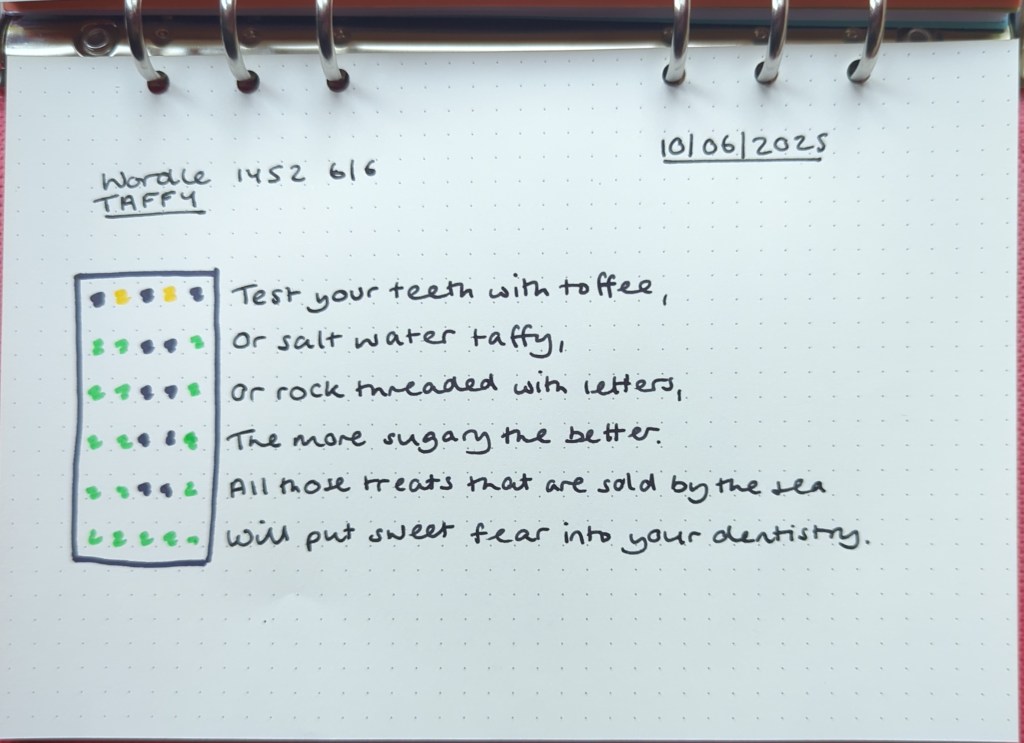 10/06/2025
Wordle 1452 6/6
TAFFY
Test your teeth with toffee,
Or salt water taffy,
Or rock threaded with letters,
The more sugary the better.
All those treats that are sold by the sea
Will put sweet fear into your dentistry.